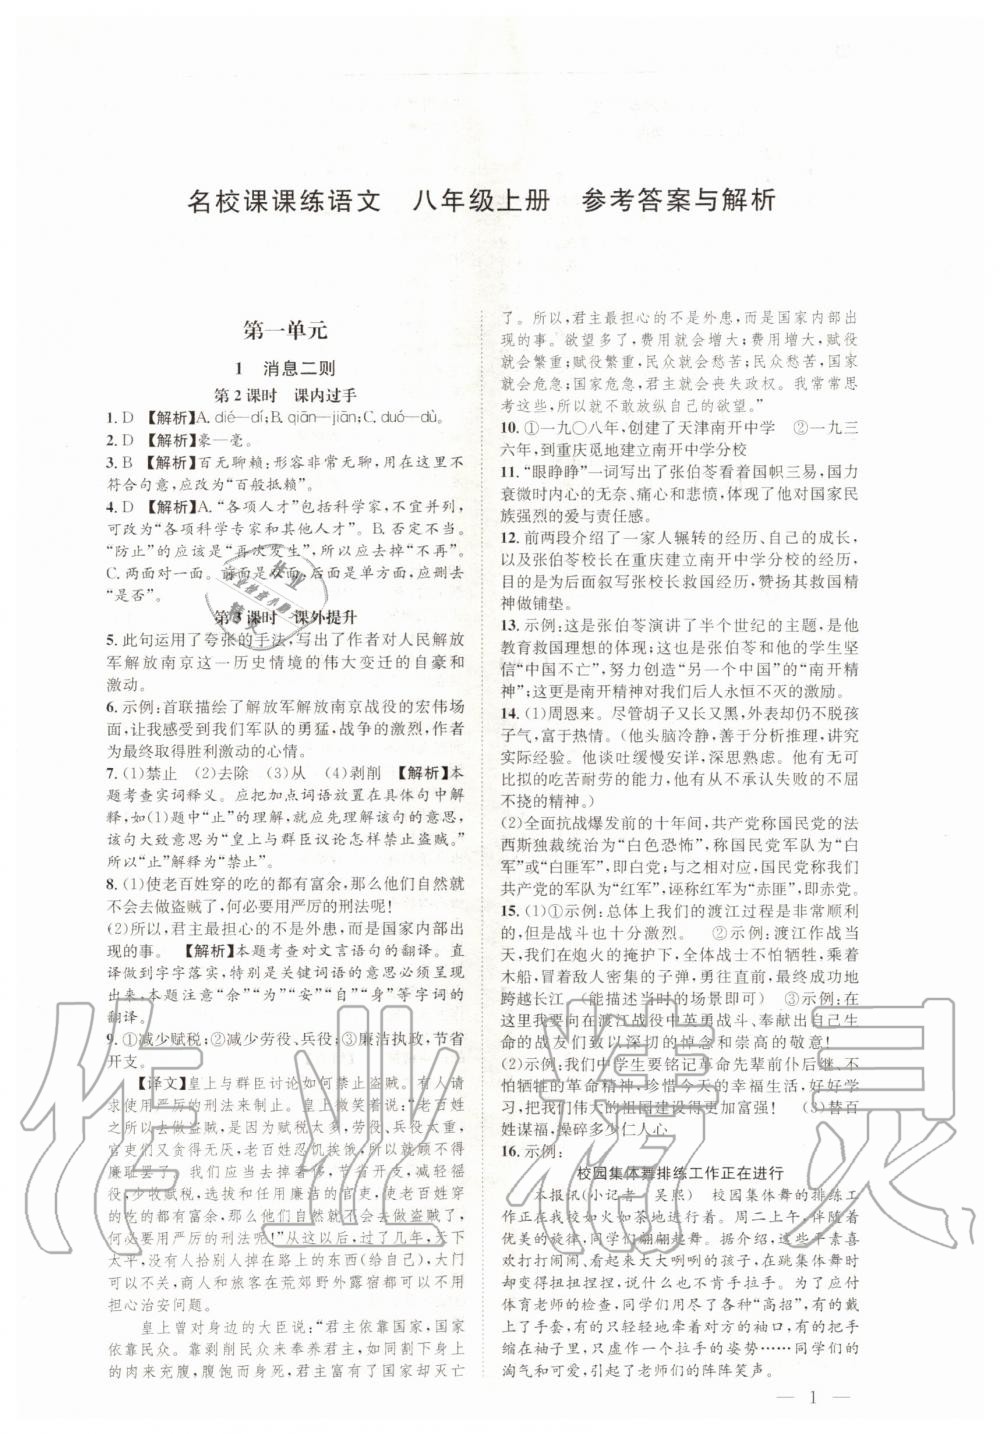 名校课课练语文 八年级上册 参考答案与解析
第一单元
1 消息二则
第2课时 课内过手
1. D 【解析】A. dié—dí；B. qiān—jiān；C. duó—dù。
2. D 【解析】豪—毫。
3. B 【解析】百无聊赖：形容非常无聊，联系语境不
符合句意，应改为“百般抵赖”。
4. D 【解析】A. “各项人才”包括科学家，不宜并列，
可改为“各项科学专家和其他人才”。B. 否定不当。
“防止”的应该是“再次发生”，所以应去掉“不再”。
C. 两面对一面。前面是双面，后面是单面，应删去
“是否”。
第3课时 课外提升
5. 此句运用了夸张的手法，写出了作者对人民解放
军解放南京这一历史情境的伟大变迁的自豪和
激动。
6. 示例：首联描绘了解放军解放南京战役的宏伟场
面，让我感受到我们军队的勇猛，战争的激烈，作者
为最终取得胜利激动的心情。
7. (1)禁止 (2)去除 (3)从 (4)剥削 【解析】本
题考查实词释义。应把加点词语放置在具体句中解
释，如(1)题中“止”的理解，就应先理解该句的意思，
该句大致意思为“皇上与群臣议论怎样禁止盗贼。”
所以“止”解释为“禁止”。
8. (1)使老百姓穿的吃的都有富余，那么他们自己就不
会去做盗贼了，何必要用严厉的刑法呢！
(2)所以，君主最担心的不是外患，而是国家内部出
现的事。 【解析】本题考查对文言语句的翻译。直
译做到字字落实，特别是关键词语的意思必须呈现
出来。本题注意“余”“为”“安”“自”“身”等字词的
翻译。
9. ①减少赋税；②减少劳役、兵役；③廉洁执政，节省
开支。
【译文】皇上与群臣讨论如何禁止盗贼。有人请
求使用严厉的刑法来制止。皇上微笑着说：“老百姓
之所以去做盗贼，是因为赋税太多，劳役、兵役太重，
官吏们又贪得无厌，老百姓吃不饱，穿不暖，所以就
顾不得廉耻罢了。我应当不奢侈，节省开支，减少劳
役，少收赋税，选拔和任用廉洁的官吏，使老百姓穿
的吃的都有富余，那么他们自己就不会去做盗贼了，
何必要用严厉的刑法呢！”从这以后，过了几年，天下
太平，没有人把别人掉在路上的东西捡走(据为己有)，大门
可以不关，商人和旅客在荒郊野外露宿都可以不用
担心治安问题。
皇上曾对身边的大臣说：“君主依靠国家，国家
依靠民众。靠剥削民众来奉养君主，如同割自己身上
的肉来充腹，腹饱而身死，君主富有了国家却灭亡
了。所以，君主最担心的不是外患，而是国家内部出
现的事。欲望多了，费用就会增大；费用增大，赋役
就会繁重；赋役繁重，民众就会愁苦；民众愁苦，国家
就会危急；国家危急，君主就会丧失政权。我常常思
考这些，所以就不敢放纵自己的欲望。”
10. ①一九〇八年，创建了天津南开中学 ②一九三
六年，到重庆觅地建立南开中学分校
11. “眼睁睁”一词写出了张伯苓看着国帜三易，国力
衰微时内心的无奈、痛心和悲愤，体现了他对国家民
族强烈的爱与责任感。
12. 前两段介绍了一家人辗转的经历、自己的成长，
以及张伯苓校长在重庆建立南开中学分校的经历，
目的是为后面叙写张校长救国经历，赞扬其救国精
神做铺垫。
13. 示例：这是张伯苓演讲了半个世纪的主题，是他
教育救国理想的方式；这是张伯苓和他的学生坚
信“中国不亡”，努力创造“另一个中国”的“南开精
神”；这更是南开精神对我们后人永恒不灭的激励。
14. (1)周恩来。尽管胡子又长又黑，外表却仍脱不孩
子气，富于热情。(他头脑冷静，善于分析推理，讲究
实际经验。他谈吐缓慢安详，深思熟虑。他有无可
比拟的吃苦耐劳的能力，他有从不承认失败的不屈
不挠的精神。)
(2)全面抗战爆发前的十年间，共产党称国民党的法
西斯独裁统治为“白色恐怖”，称国民党军队为“白
军”或“白匪军”，即白党；与之相对应，国民党称我们
共产党的军队为“红军”，诬称红军为“赤匪”，即赤党。
15. (1)①示例：总体上我们的渡江过程是非常顺利
的，但是战斗也十分激烈。 ②示例：渡江作战当
天，我军在炮火的掩护下，全体战士不怕牺牲，乘着
木船，冒着敌人密集的子弹，勇往直前，最终成功地
跨越长江。(能描述当时的场景即可) ③示例：在
这里我要向在渡江战役中英勇战斗、奉献出自己生
命的战友们致以深切的悼念和崇高的敬意！
(2)示例：我们中学生要铭记革命先辈前仆后继、不
怕牺牲的革命精神，珍惜今天的幸福生活，努力学习，
把我们伟大的祖国建设得更加富强！ (3)替百
姓谋福，操碎多少仁人心。
16. 示例：
校园集体舞排练工作正在进行
本报讯(小记者 吴熙) 校园集体舞的排练工
作正在我校如火如荼地进行着。周二上午，伴随着
优美的旋律，同学们翩翩起舞。据介绍，这些平常喜
欢打打闹闹、看起来大大咧咧的孩子，在跳集体舞时
却变得扭扭捏捏，说什么也不肯手拉手。为了应付
体育老师的检查，同学们用了各种“高招”，有的戴
上了手套，有的只轻轻地牵对方的袖口，有的把手缩
在袖子里，只虚作一个手拉手的姿势……同学们的
淘气和可爱，引起了老师们的阵阵笑声。
— 1 —